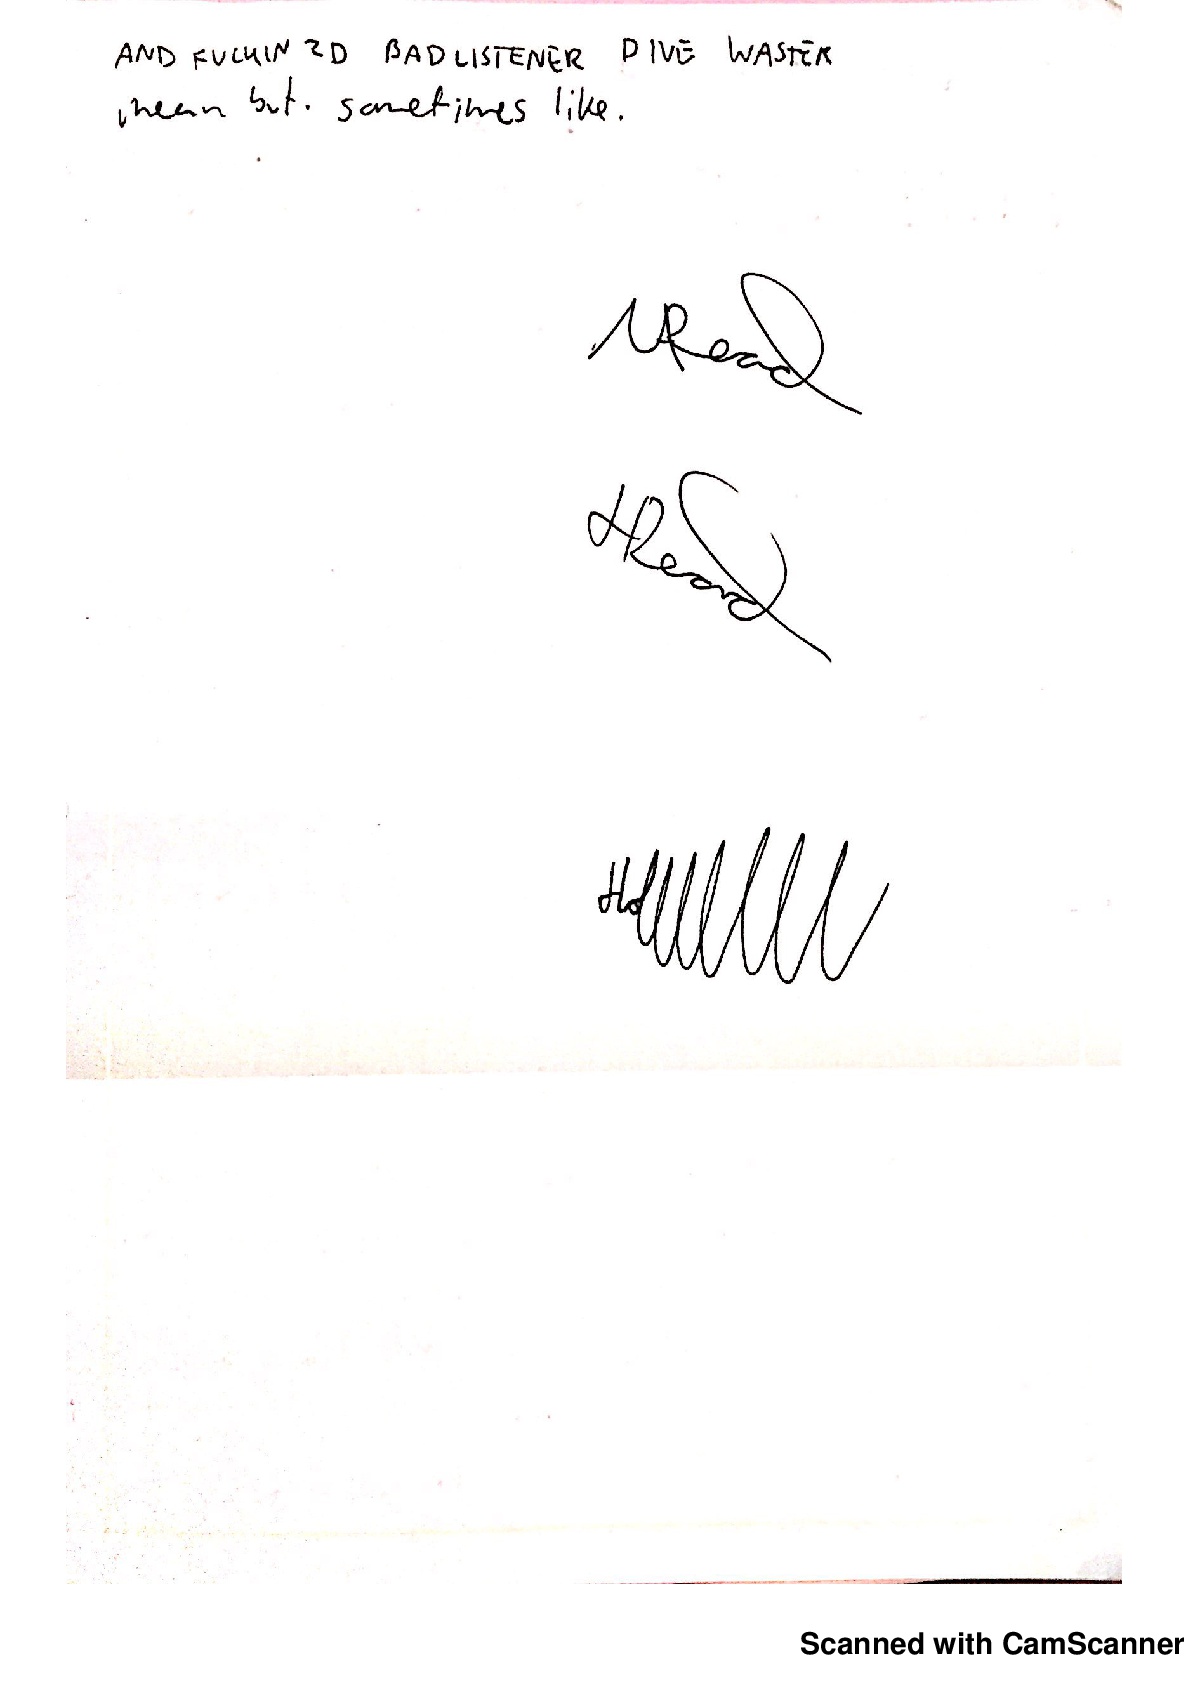 AND FUCKIN 2D BAD LISTENER DIVE WASTER
mean but. sometimes like.
NRead
HRead
Scanned with CamScanner